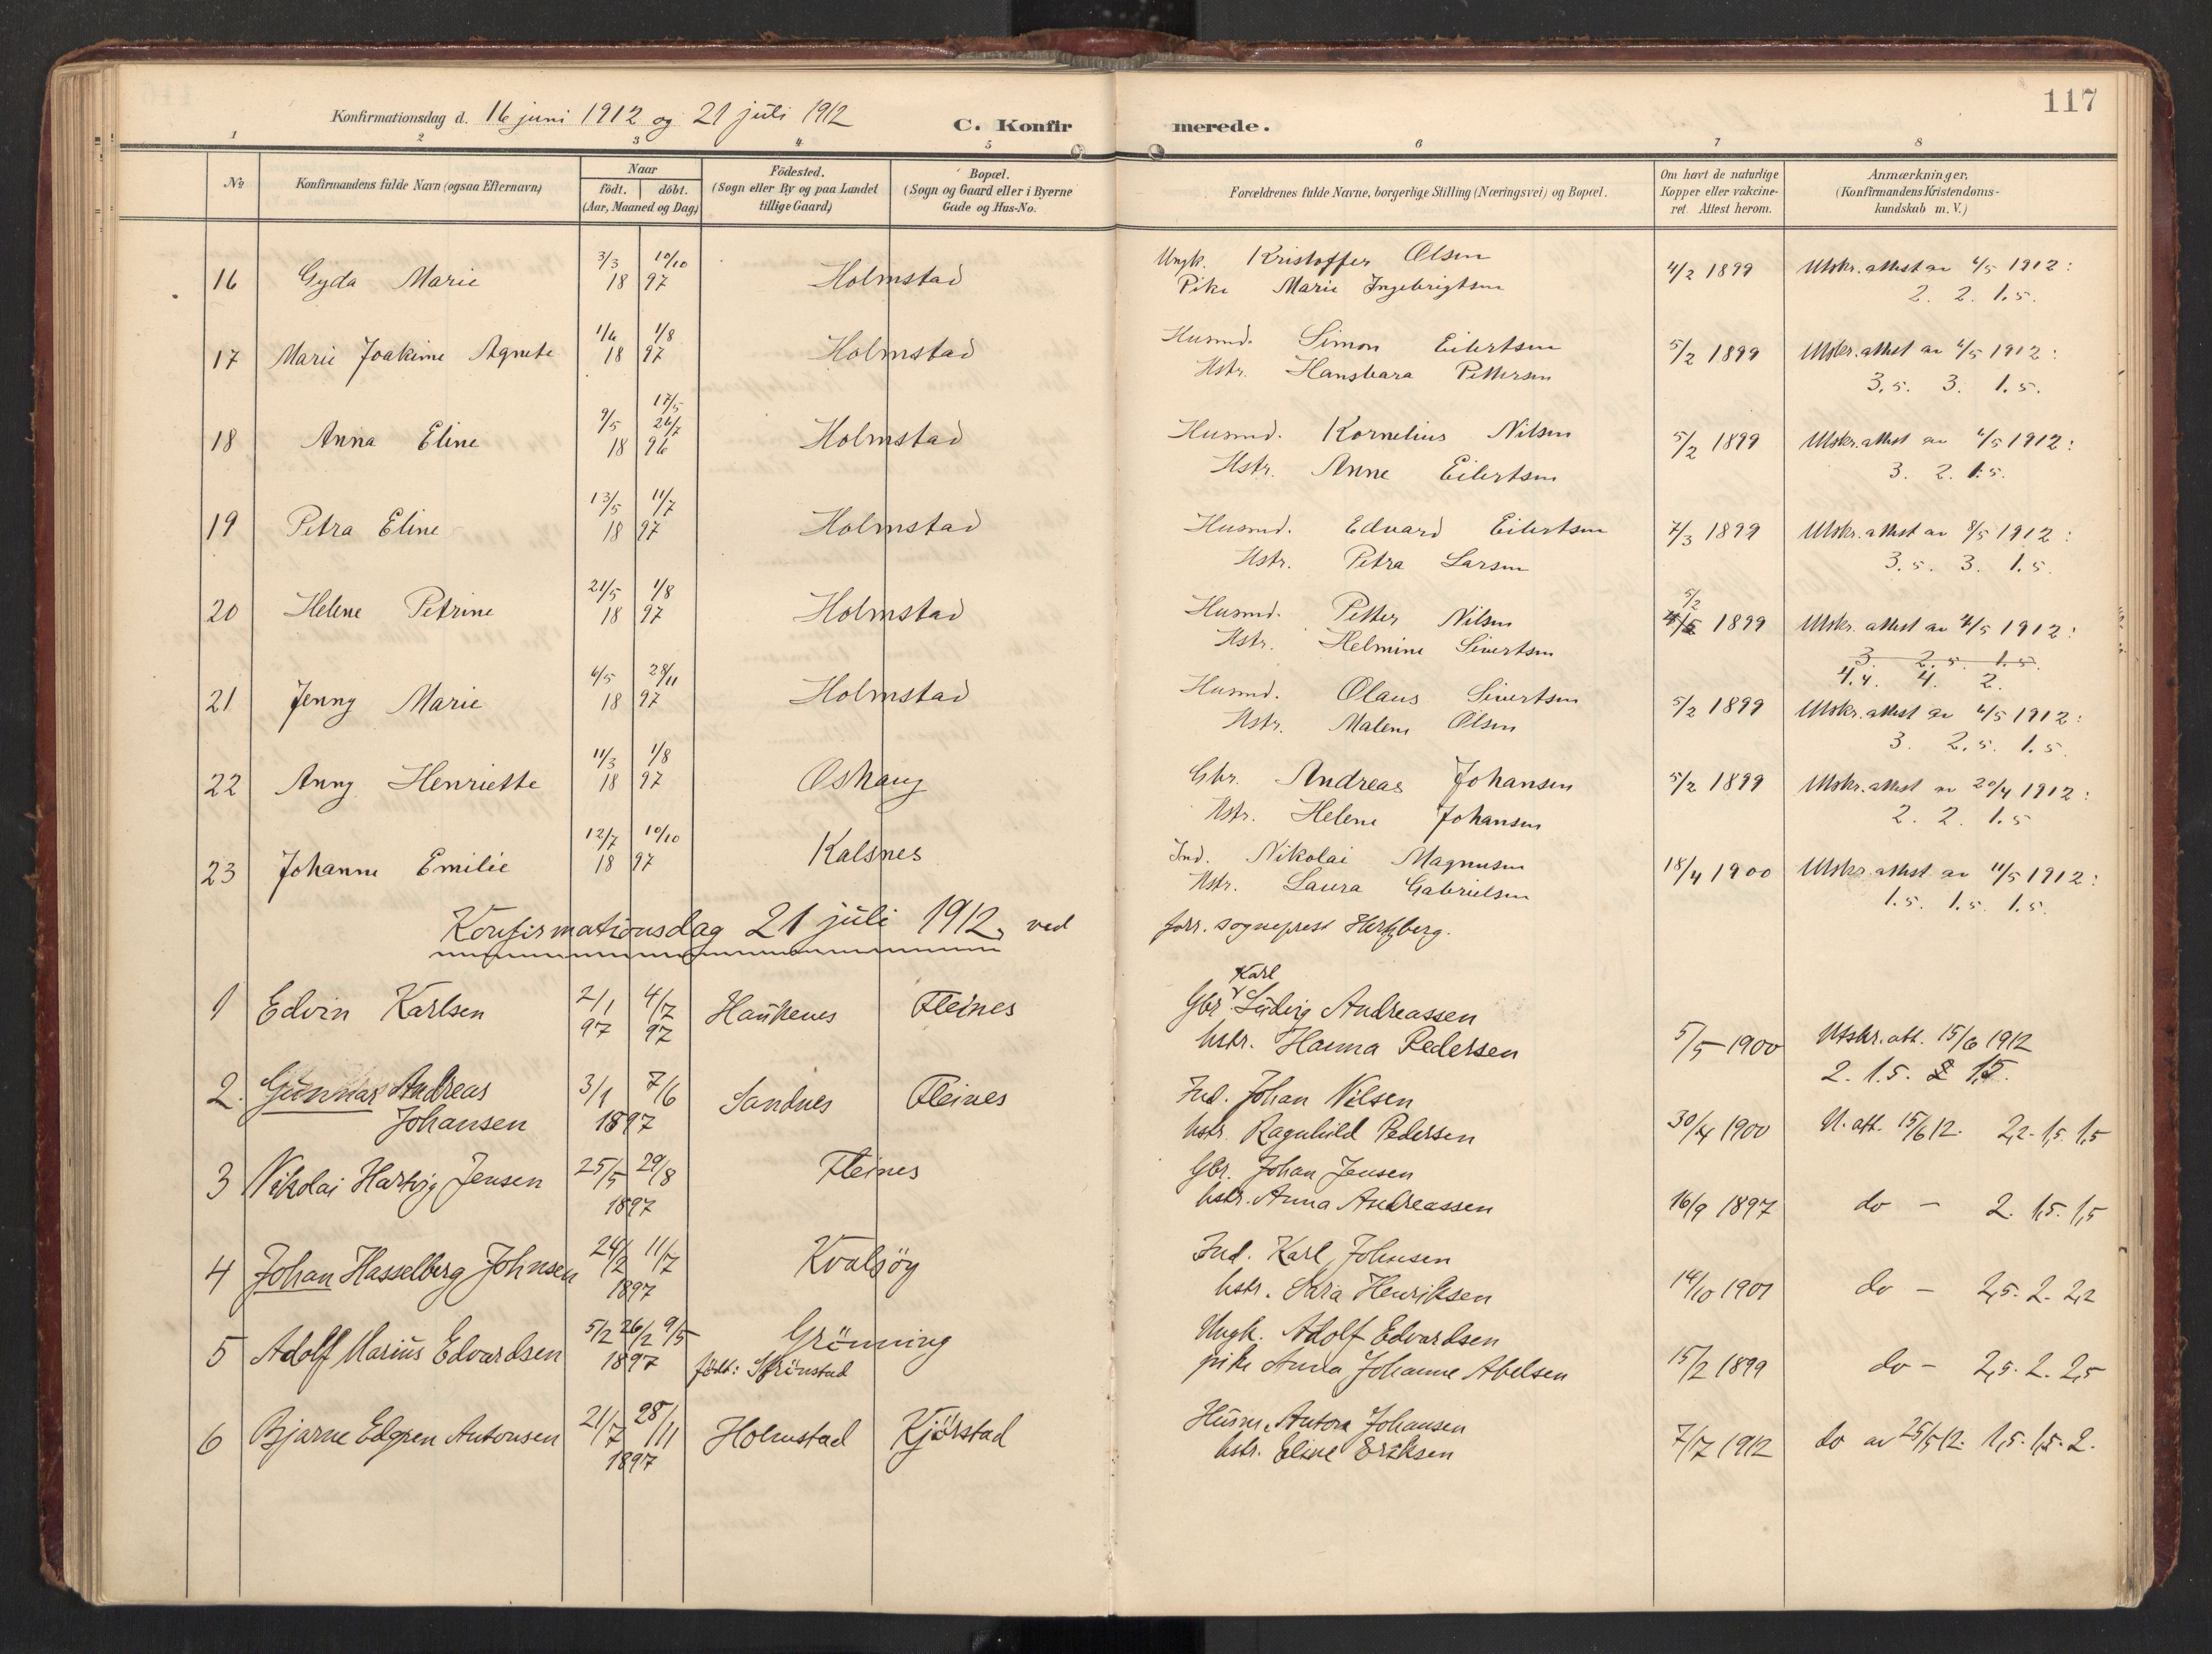 117
Konfirmationsdag d. 16 juni 1912 og 21 juli 1912
C. Konfirmerede.
1 2 3 4 5 6 7 8
No
Konfirmandens fulde Navn (ogsaa Efternavn)
Naar
födt. döbt.
(Aar, Maaned og Dag)
Födested.
(Sogn eller By og paa Landet
tillige Gaard)
Bopæl.
(Sogn og Gaard eller i Byerne
Gade og Hus-No.
Forældrenes fulde Navne, borgerlige Stilling (Næringsvei) og Bopæl.
Om havt de naturlige
Kopper eller vakcine-
ret. Attest herom.
Anmærkninger.
(Konfirmandens Kristendoms-
kundskab m. V.)
16 Gyda Marie 3/3 10/10 1897 Holmstad Ungk. Kristoffer Olsen 4/2 1899 Utskr. attest av 4/5 1912:
Pike Marie Ingebrigtsen 2. 2. 1.5.
17 Marie Joakime Agnete 1/6 1/8 1897 Holmstad Husmd. Simon Eilertsen 5/2 1899 Utskr. attest av 4/5 1912:
Hstr. Hansbara Pettersen 3.5. 3. 1.5.
18 Anna Eline 9/5 17/5 26/7 1896 Holmstad Husmd. Kornelius Nilsen 5/2 1899 Utskr. attest av 4/5 1912:
Hstr. Anne Eilertsen 3. 2. 1.5.
19 Petra Eline 13/5 11/7 1897 Holmstad Husmd. Edvard Eilertsen 7/3 1899 Utskr. attest av 8/5 1912:
Hstr. Petra Larsen 3.5. 3. 1.5.
20 Helene Petrine 21/5 1/8 1897 Holmstad Husmd. Petter Nilsen 5/2 1899 Utskr. attest av 4/5 1912:
Hstr. Helmine Sivertsen 3. 2.5. 1.5.
4.4. 4. 2.
21 Jenny Marie 6/5 28/11 1897 Holmstad Husmd. Olaus Sivertsen 5/2 1899 Utskr. attest av 4/5 1912:
Hstr. Malene Olsen 3. 2.5. 1.5.
22 Anny Henriette 11/3 1/8 1897 Oshaug Gbr. Andreas Johansen 5/2 1899 Utskr. attest av 20/4 1912:
Hstr. Helene Johansen 2. 2. 1.5
23 Johanne Emilie 12/7 10/10 1897 Kalsnes Ind. Nikolai Magnusen 18/4 1900 Utskr. attest av 11/5 1912:
Hstr. Laura Gabrielsen 1.5. 1.5. 1.5.
Konfirmationsdag 21 juli 1912, ved forr. sogneprest Hertzberg.
Karl
1 Edvin Karlsen 2/1 97 4/7 97 Haukenes Fleines Gbr. Ludvig Andreassen
hstr. Hanna Pedersen 5/5 1900 Utskr. att. 15/6 1912
2. 1.5. 1.5.
2. Gunnar Andreas 3/1 7/6 Sandnes Fleines Ind. Johan Nilsen
Johansen 1897 hstr. Ragnhild Pedersen 30/4 1900 U. att. 15/6 12. 2,2. 1,5. 1,5
3 Nikolai Hartvig Jensen 25/5 29/8 1897 Fleines Gbr. Johan Jensen
hstr. Anna Andreassen 16/9 1897 do - 2. 1,5. 1,5
4 Johan Hasselberg Johnsen 24/2 11/7 1897 Kvalsöy Ind. Karl Johnsen
hstr. Sara Henriksen 14/10 1901 do - 2,5. 2. 2,2
5 Adolf Marius Edvardsen 5/2 26/2 9/5 1897 Grönning Ungk. Adolf Edvardsen
født: Strönstad pike Anna Johanne Abelsen 15/2 1899 do - 2,5. 2. 2,5
6 Bjarne Edgren Antonsen 21/7 28/11 1897 Holmstad Kjörstad Husm. Anton Johansen
hstr. Eline Eriksen 7/7 1912 do av 25/5 12. 1,5. 1,5. 2.